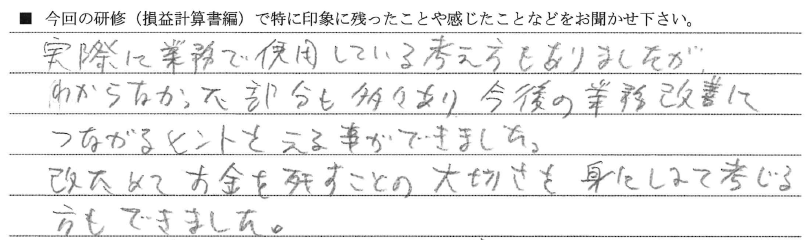 ■ 今回の研修（損益計算書編）で特に印象に残ったことや感じたことなどをお聞かせ下さい。
実際に業務で使用している考え方もありましたが、
わからなかった部分も多々あり 今後の業務改善に
つながるヒントをえる事ができました。
改ためて お金を残すことの大切さも 身にしみて考じる
方もできました。